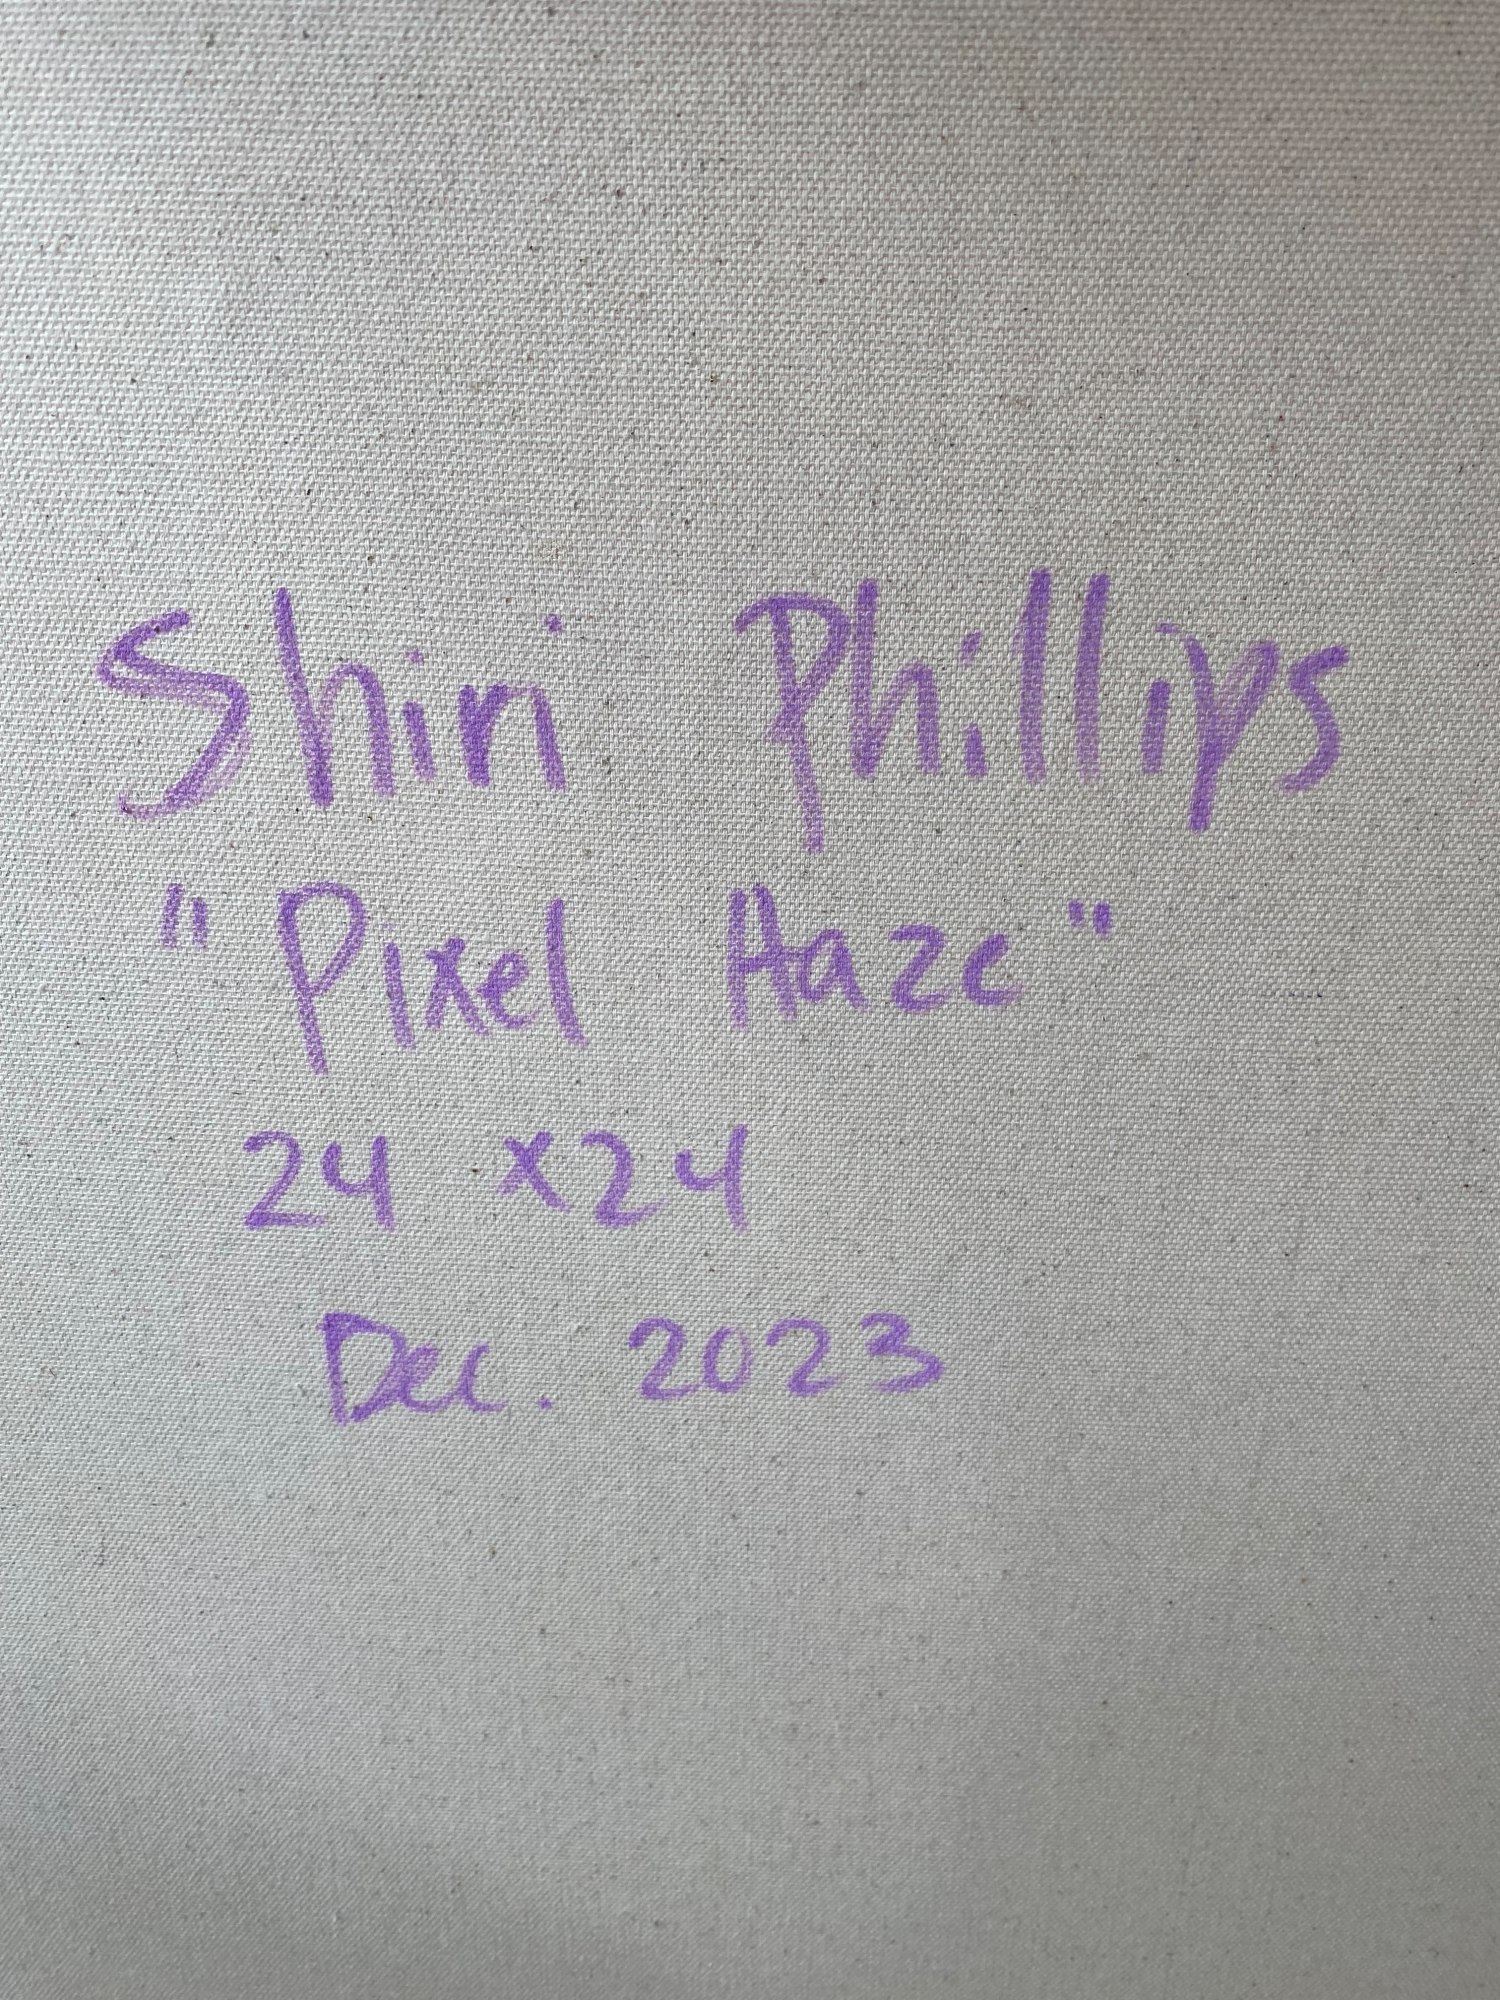 Shiri Phillips
"Pixel Haze"
24 x24
Dec. 2023